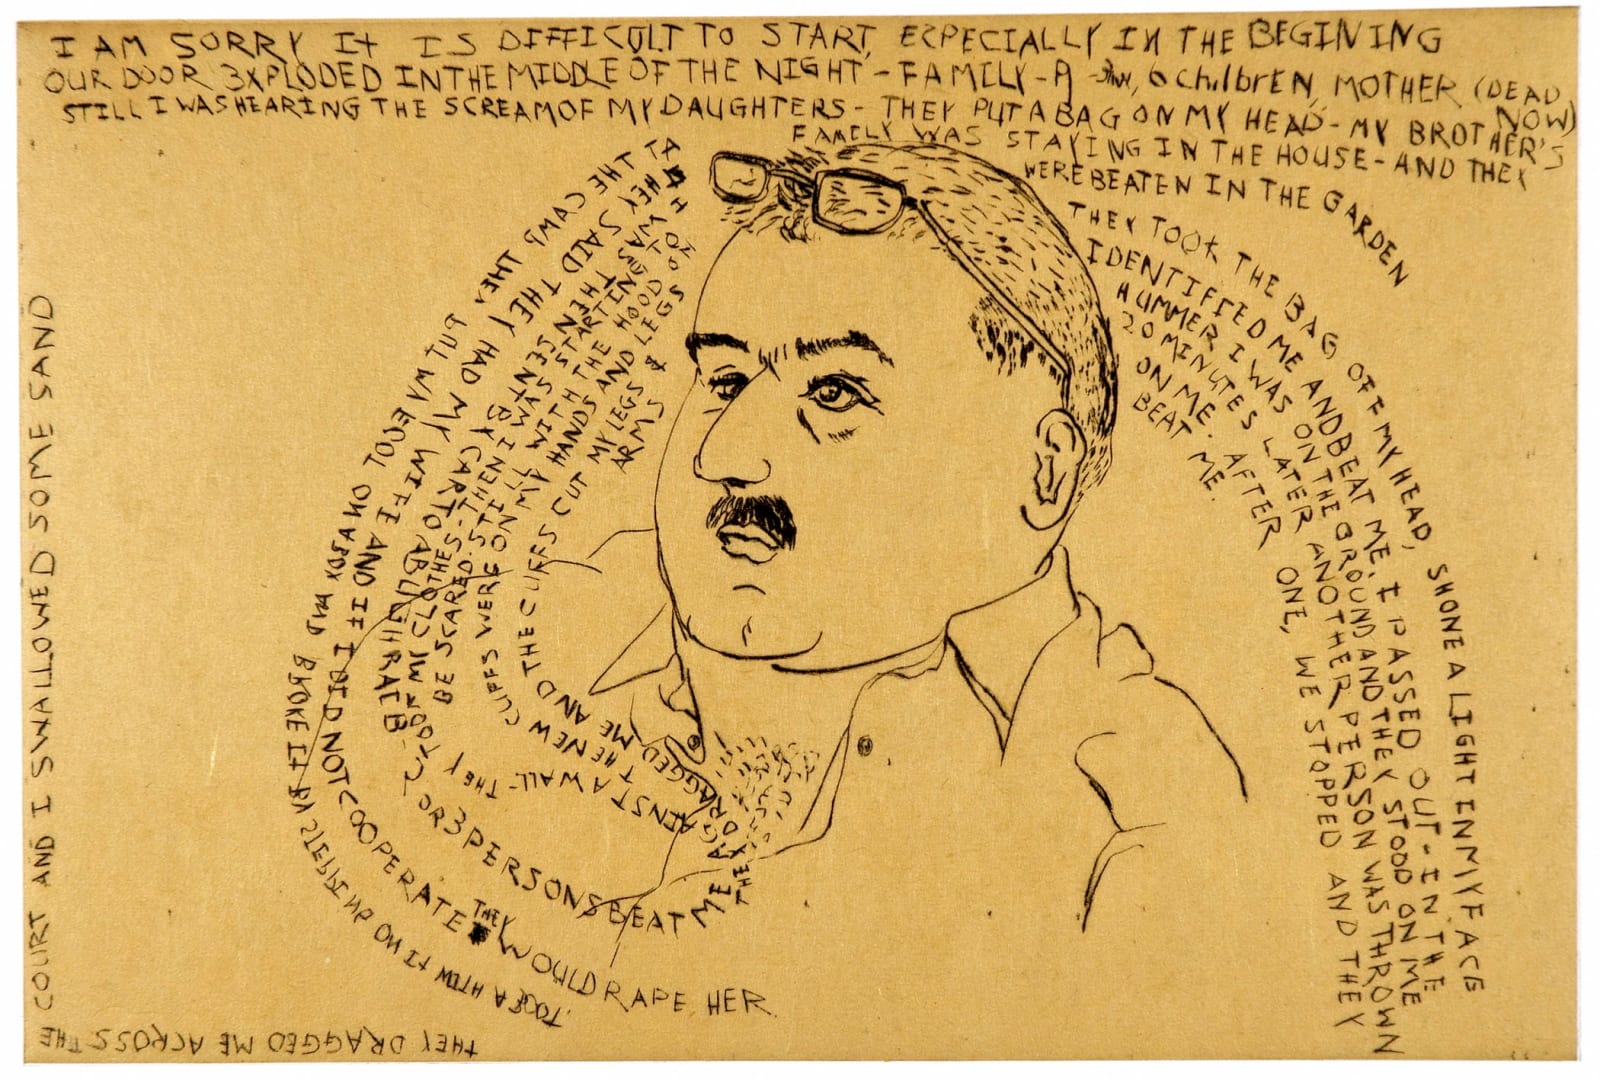 I AM SORRY It IS DIFFICULT TO START, ESPECIALLY IN THE BEGINING
OUR DOOR 3XPLODED IN THE MIDDLE OF THE NIGHT - FAMILY - A 6 ChilbrEN, MOTHER (DEAD NOW)
STILL I WAS HEARING THE SCREAM OF MY DAUGHTERS - THEY PUT A BAG ON MY HEAD - MY BROTHER'S
FAMILY WAS STAYING IN THE HOUSE - AND THEY
WERE BEATEN IN THE GARDEN
THEY TOOK THE BAG OFF MY HEAD, SHONE A LIGHT IN MY FACE
IDENTIFIED ME AND BEAT ME. I PASSED OUT - IN THE
HUMMER I WAS ON THE GROUND AND THEY STOOD ON ME
20 MINUTES LATER ANOTHER PERSON WAS THROWN
ON ME. AFTER ONE, WE STOPPED AND THEY
BEAT ME.
AT THE CAMP THEY PUT MY TOE ON A BOX AND BROKE IT BY STEPPING ON IT WITH A BOOT.
THEY SAID THEY HAD MY WIFE AND IF I DID NOT COOPERATE THEY WOULD RAPE HER
THEN SENT BY CAR TO ABU GHRAIB - 2 OR 3 PERSONS BEAT ME
THEY TOOK MY CLOTHES - THEN I WAS STARTING TO
BE SCARED.
THEY DRAGGED ME AGAINST A WALL - THE NEW CUFFS WERE ON MY WITH THE HOOD ON
THEY DRAGGED ME AND THE CUFFS CUT HANDS AND LEGS
MY LEGS &
ARMS
THEY DRAGGED ME ACROSS THE
COURT AND I SWALLOWED SOME SAND